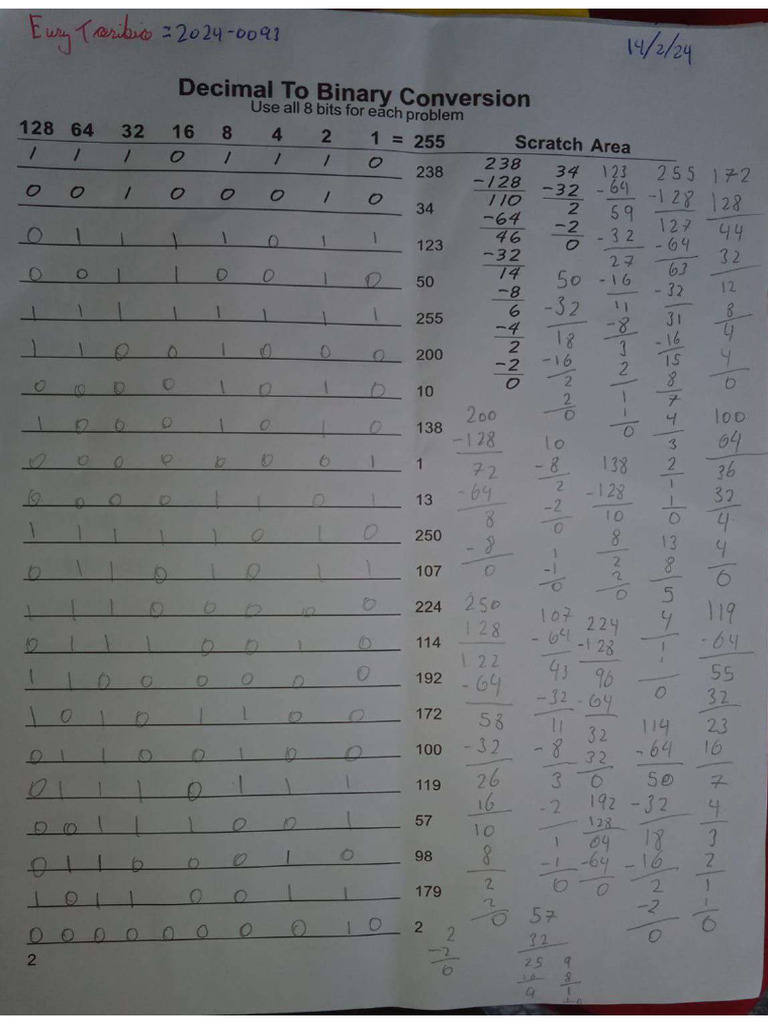 Eury Toribio = 2024-0093
14/2/24
Decimal To Binary Conversion
Use all 8 bits for each problem
128 64 32 16 8 4 2 1 = 255 Scratch Area
1 1 1 0 1 1 1 0 238
0 0 1 0 0 0 1 0 34
0 1 1 1 1 0 1 1 123
0 0 1 1 0 0 1 0 50
1 1 1 1 1 1 1 1 255
1 1 0 0 1 0 0 0 200
0 0 0 0 1 0 1 0 10
1 0 0 0 1 0 1 0 138
0 0 0 0 0 0 0 1 1
0 0 0 0 1 1 0 1 13
1 1 1 1 1 0 1 0 250
0 1 1 0 1 0 1 1 107
1 1 1 0 0 0 0 0 224
0 1 1 1 0 0 1 0 114
1 1 0 0 0 0 0 0 192
1 0 1 0 1 1 0 0 172
0 1 1 0 0 1 0 0 100
0 1 1 1 0 1 1 1 119
0 0 1 1 1 0 0 1 57
0 1 1 0 0 0 1 0 98
1 0 1 1 0 0 1 1 179
0 0 0 0 0 0 0 1 0 2
2
238
-128
110
-64
46
-32
14
-8
6
-4
2
-2
0
34
-32
2
-2
0
123
-64
59
-32
27
-16
11
-8
3
2
1
1
0
255
-128
127
-64
63
-32
31
-16
15
8
7
4
3
2
1
1
0
172
128
44
32
12
8
4
4
0
50
-32
18
-16
2
2
0
200
-128
72
-64
8
-8
0
10
-8
2
-2
0
138
-128
10
8
2
2
0
100
64
36
32
4
4
0
1
-1
0
13
8
5
4
1
1
0
250
128
122
-64
58
-32
26
16
10
8
2
2
0
107
-64
43
-32
11
-8
3
-2
1
-1
0
224
-128
96
-64
32
32
0
119
-64
55
32
23
16
7
4
3
2
1
1
0
114
-64
50
-32
18
-16
2
-2
0
192
128
64
-64
0
2
-2
0
57
32
25
16
9
9
8
1